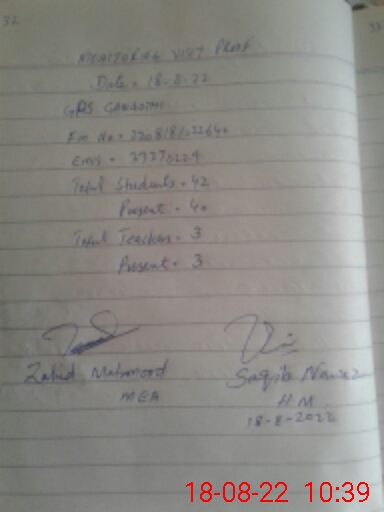 32
33
MONITORING VISIT PROOF
Date = 18-8-22
GPS
EMIS = 37370229
Total Students = 42
Present = 40
Total Teachers = 3
Present = 3
Zahid Mahmood
MEA
Saqib Nawaz
H.M
18-8-2022
18-08-22 10:39